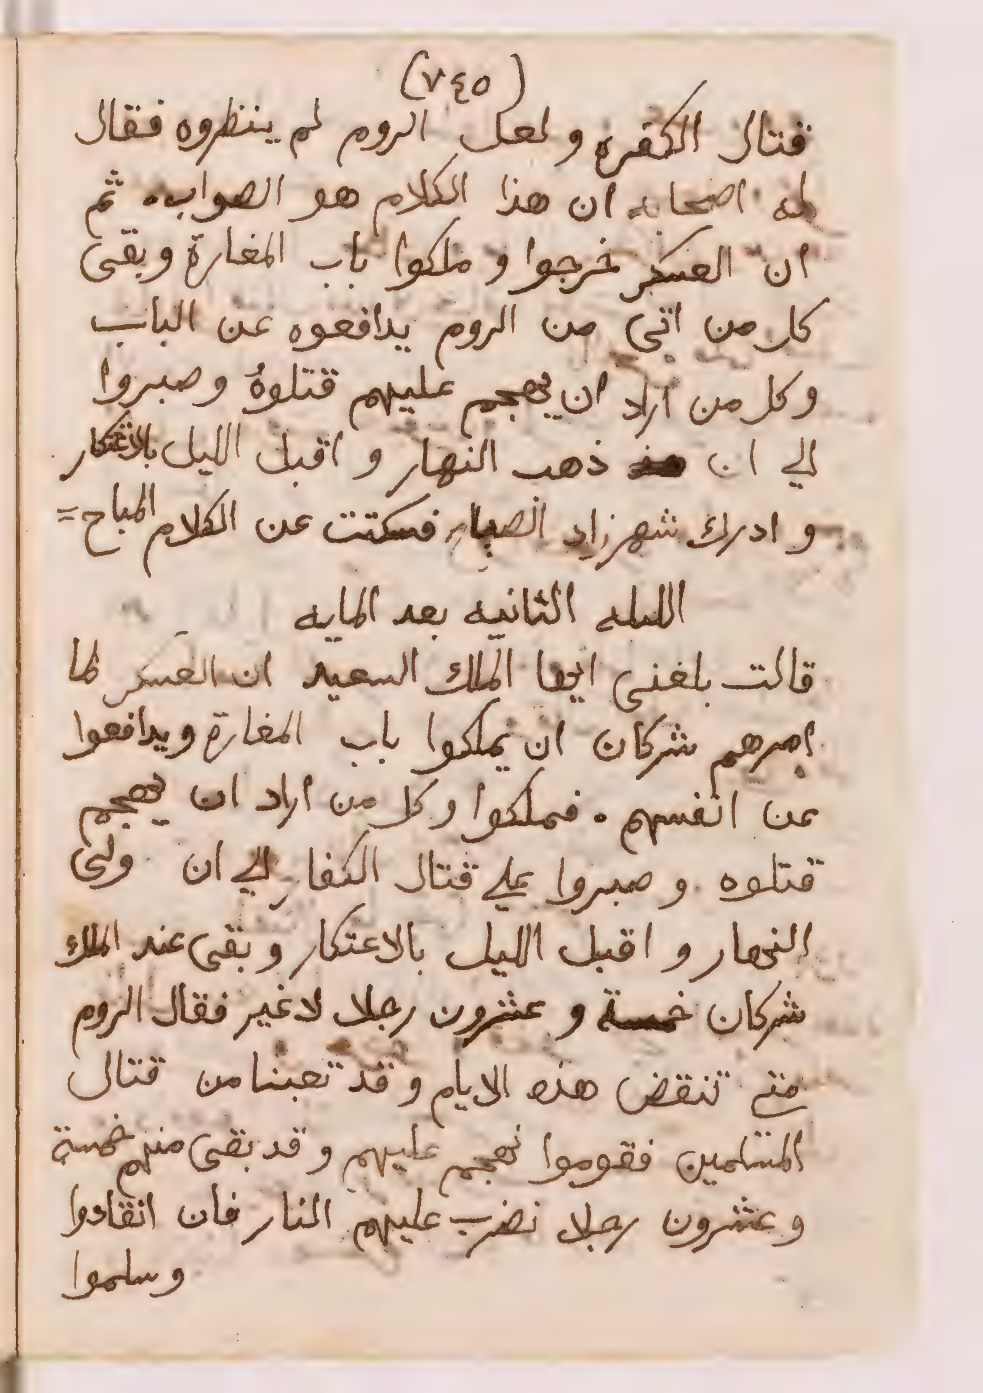 (٧٤٥)
قتال الكفره ولعل الروم لم ينظروه فقال
له اصحابه ان هذا الكلام هو الصواب. ثم
ان العسكر خرجوا و ملكوا باب المغارة وبقى
كل من اتى من الروم يدافعوه عن الباب
وكل من اراد ان يهجم عليهم قتلوهُ وصبروا
الي ان ذهب النهار و اقبل الليل بالاعتكار
و ادرك شهرزاد الصباح فسكتت عن الكلام المباح =
الليله الثانيه بعد المايه
قالت بلغنى ايها الملك السعيد ان العسكر لما
امرهم شركان ان يملكوا باب المغارة ويدافعوا
عن انفسهم . فملكوا وكل من اراد ان يهجم
قتلوه و صبروا علي قتال الكفار الي ان ولى
النهار و اقبل الليل بالاعتكار وبقى عند الملك
شركان خمسة و عشرون رجلا لاغير فقال الروم
متي تنقض هذه الايام وقد تعبنا من قتال
المسلمين فقوموا نهجم عليهم وقد بقى منهم خمسة
وعشرون رجلا نضرب عليهم النار فان انقادوا
وسلموا